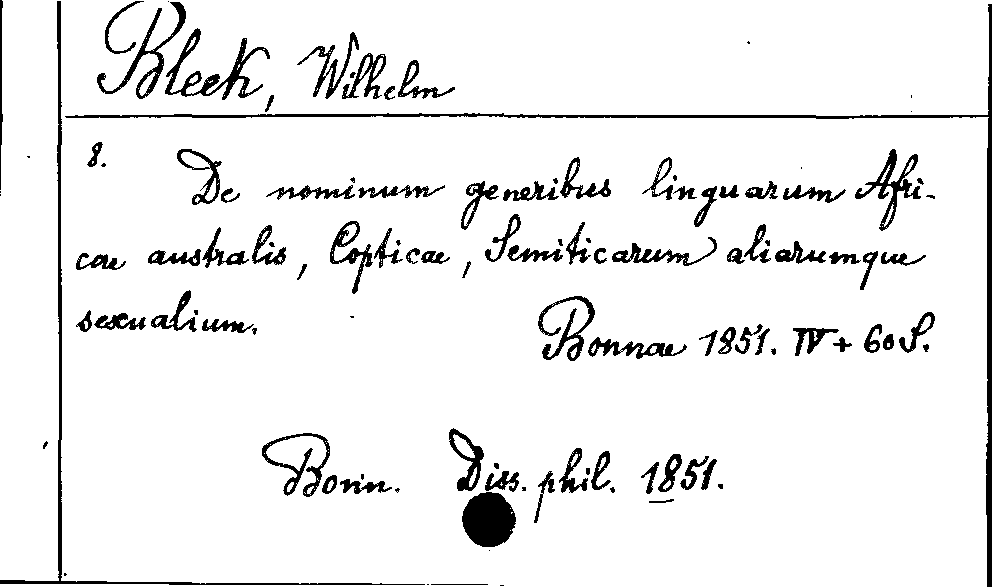 Bleek, Wilhelm
8. De nominum generibus linguarum Afri-
cae australis, Copticae, Semiticarum aliarumque
sexualium.
Bonnae 1851. IV + 60 S.
Bonn. Diss. phil. 1851.